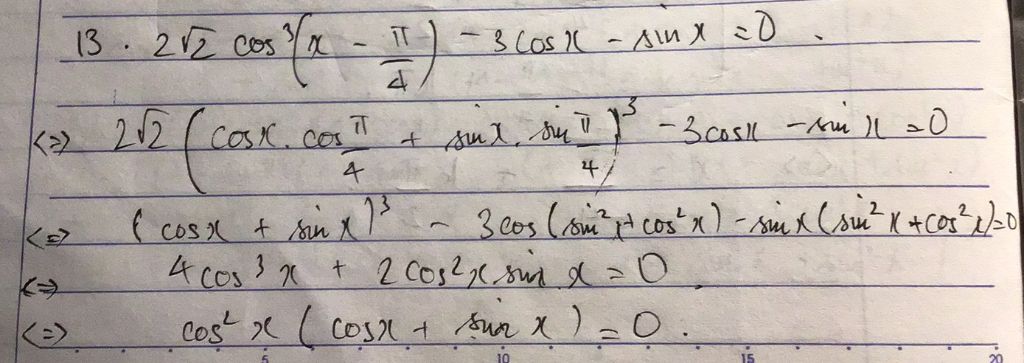 13. 2√2 cos³(x - π/4) - 3cosx - sinx = 0.
<=> 2√2 (cosx. cos π/4 + sinx. sin π/4)³ - 3cosx - sin x = 0
<=> (cosx + sinx)³ - 3cos(sin²x + cos²x) - sinx(sin²x + cos²x) = 0
<=> 4cos³x + 2cos²x sin x = 0
<=> cos²x (cosx + sinx) = 0.
5 10 15 20